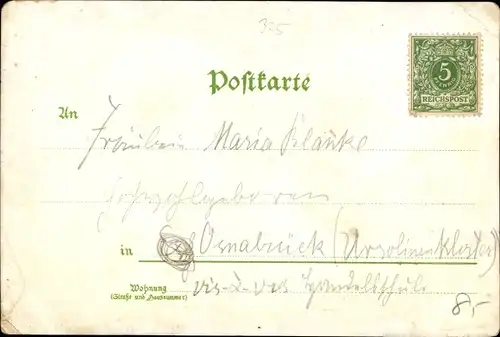 325
Postkarte
5
REICHSPOST
An
Fräulein Maria Klanke
Hochwohlgeboren
in Osnabrück (Ursolinenkloster)
Wohnung
(Straße und Hausnummer)
vis-à-vis Handelsschule
85,-